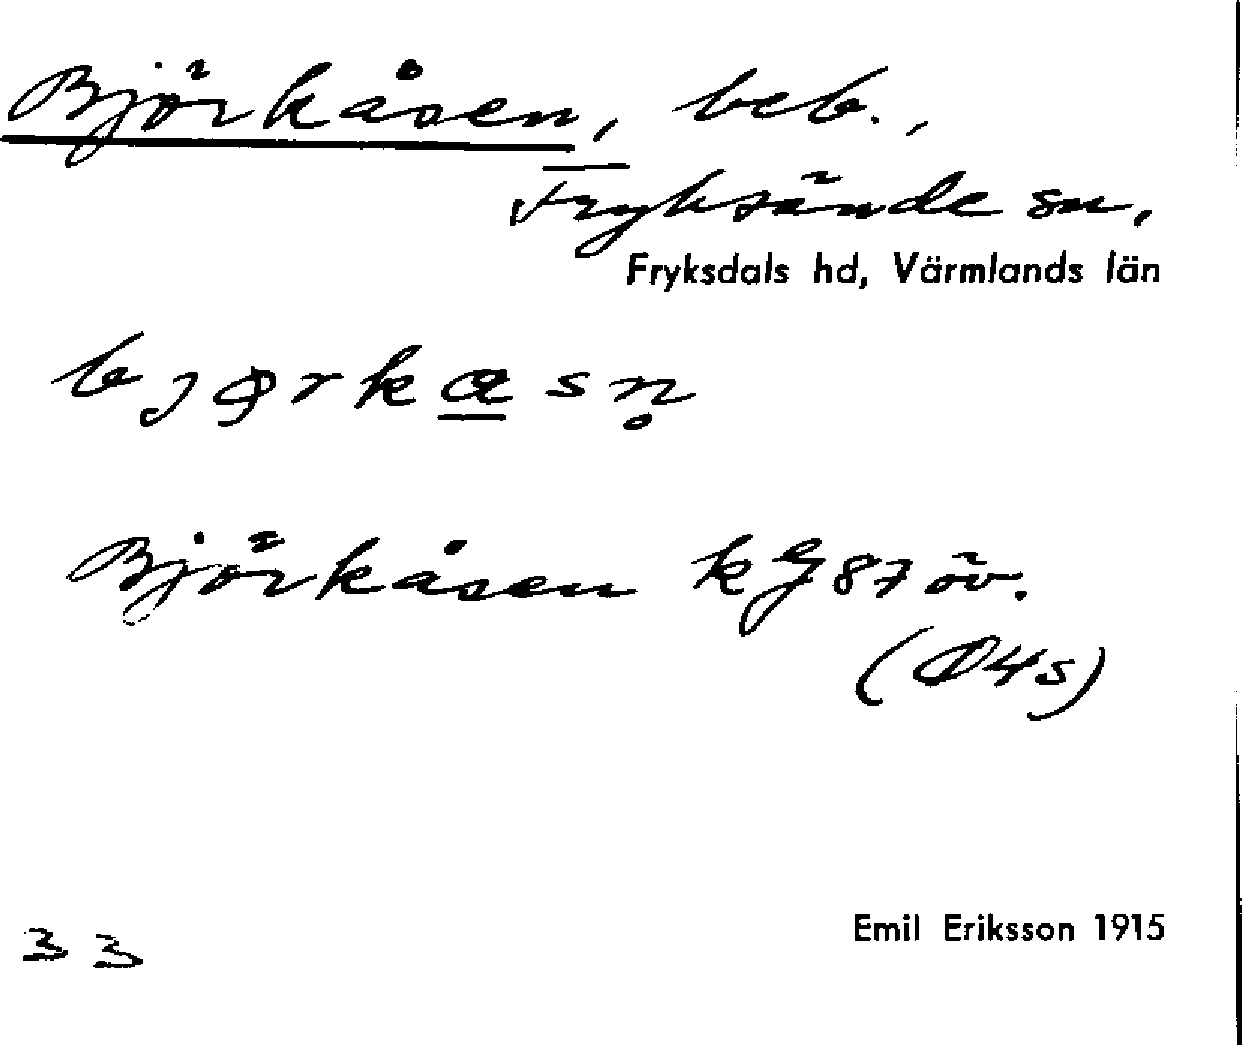 Björkåsen, beb.,
Fryksände sn,
Fryksdals hd, Värmlands län
bjørkåsn̥
Björkåsen kJ 87 öv.
(Ø4s)
Emil Eriksson 1915
33